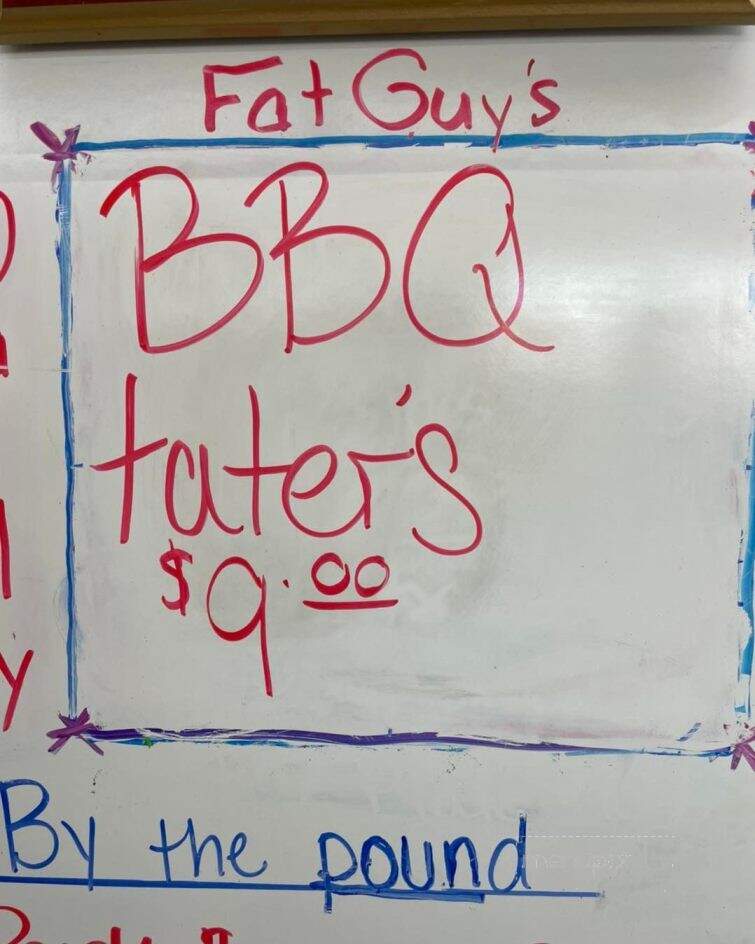 Fat Guy's
BBQ
tater's
$9.00
By the pound